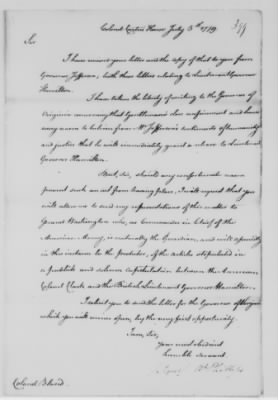 Colonel Curtis House July 5th 1779
399
Sir
I have received your letter and the copy of that to you from
Governor Jefferson, with those letters relating to Lieutenant Governor
Hamilton.
I have taken the liberty of writing to the Governor of
Virginia concerning that Gentleman's close confinement and have
every reason to believe from Mr Jefferson's sentiments of humanity
and justice that he will immediately grant a release to Lieutenant
Governor Hamilton.
But, Sir, should any unforeseen reason
prevent such an act from taking place, I must request that you
will allow me to send my representations of this matter to
General Washington who, as Commander in Chief of the
American Army, is naturally the Guardian, and will especially
in this instance be the protector, of the articles stipulated in
a publick and solemn capitulation between the American
Colonel Clarke and the British Lieutenant Governor Hamilton.
I intreat you to send the letter for the Governor of Virginia
which you will receive open, by the very first opportunity.
I am, Sir,
Your most obedient
humble servant.
Colonel Bland